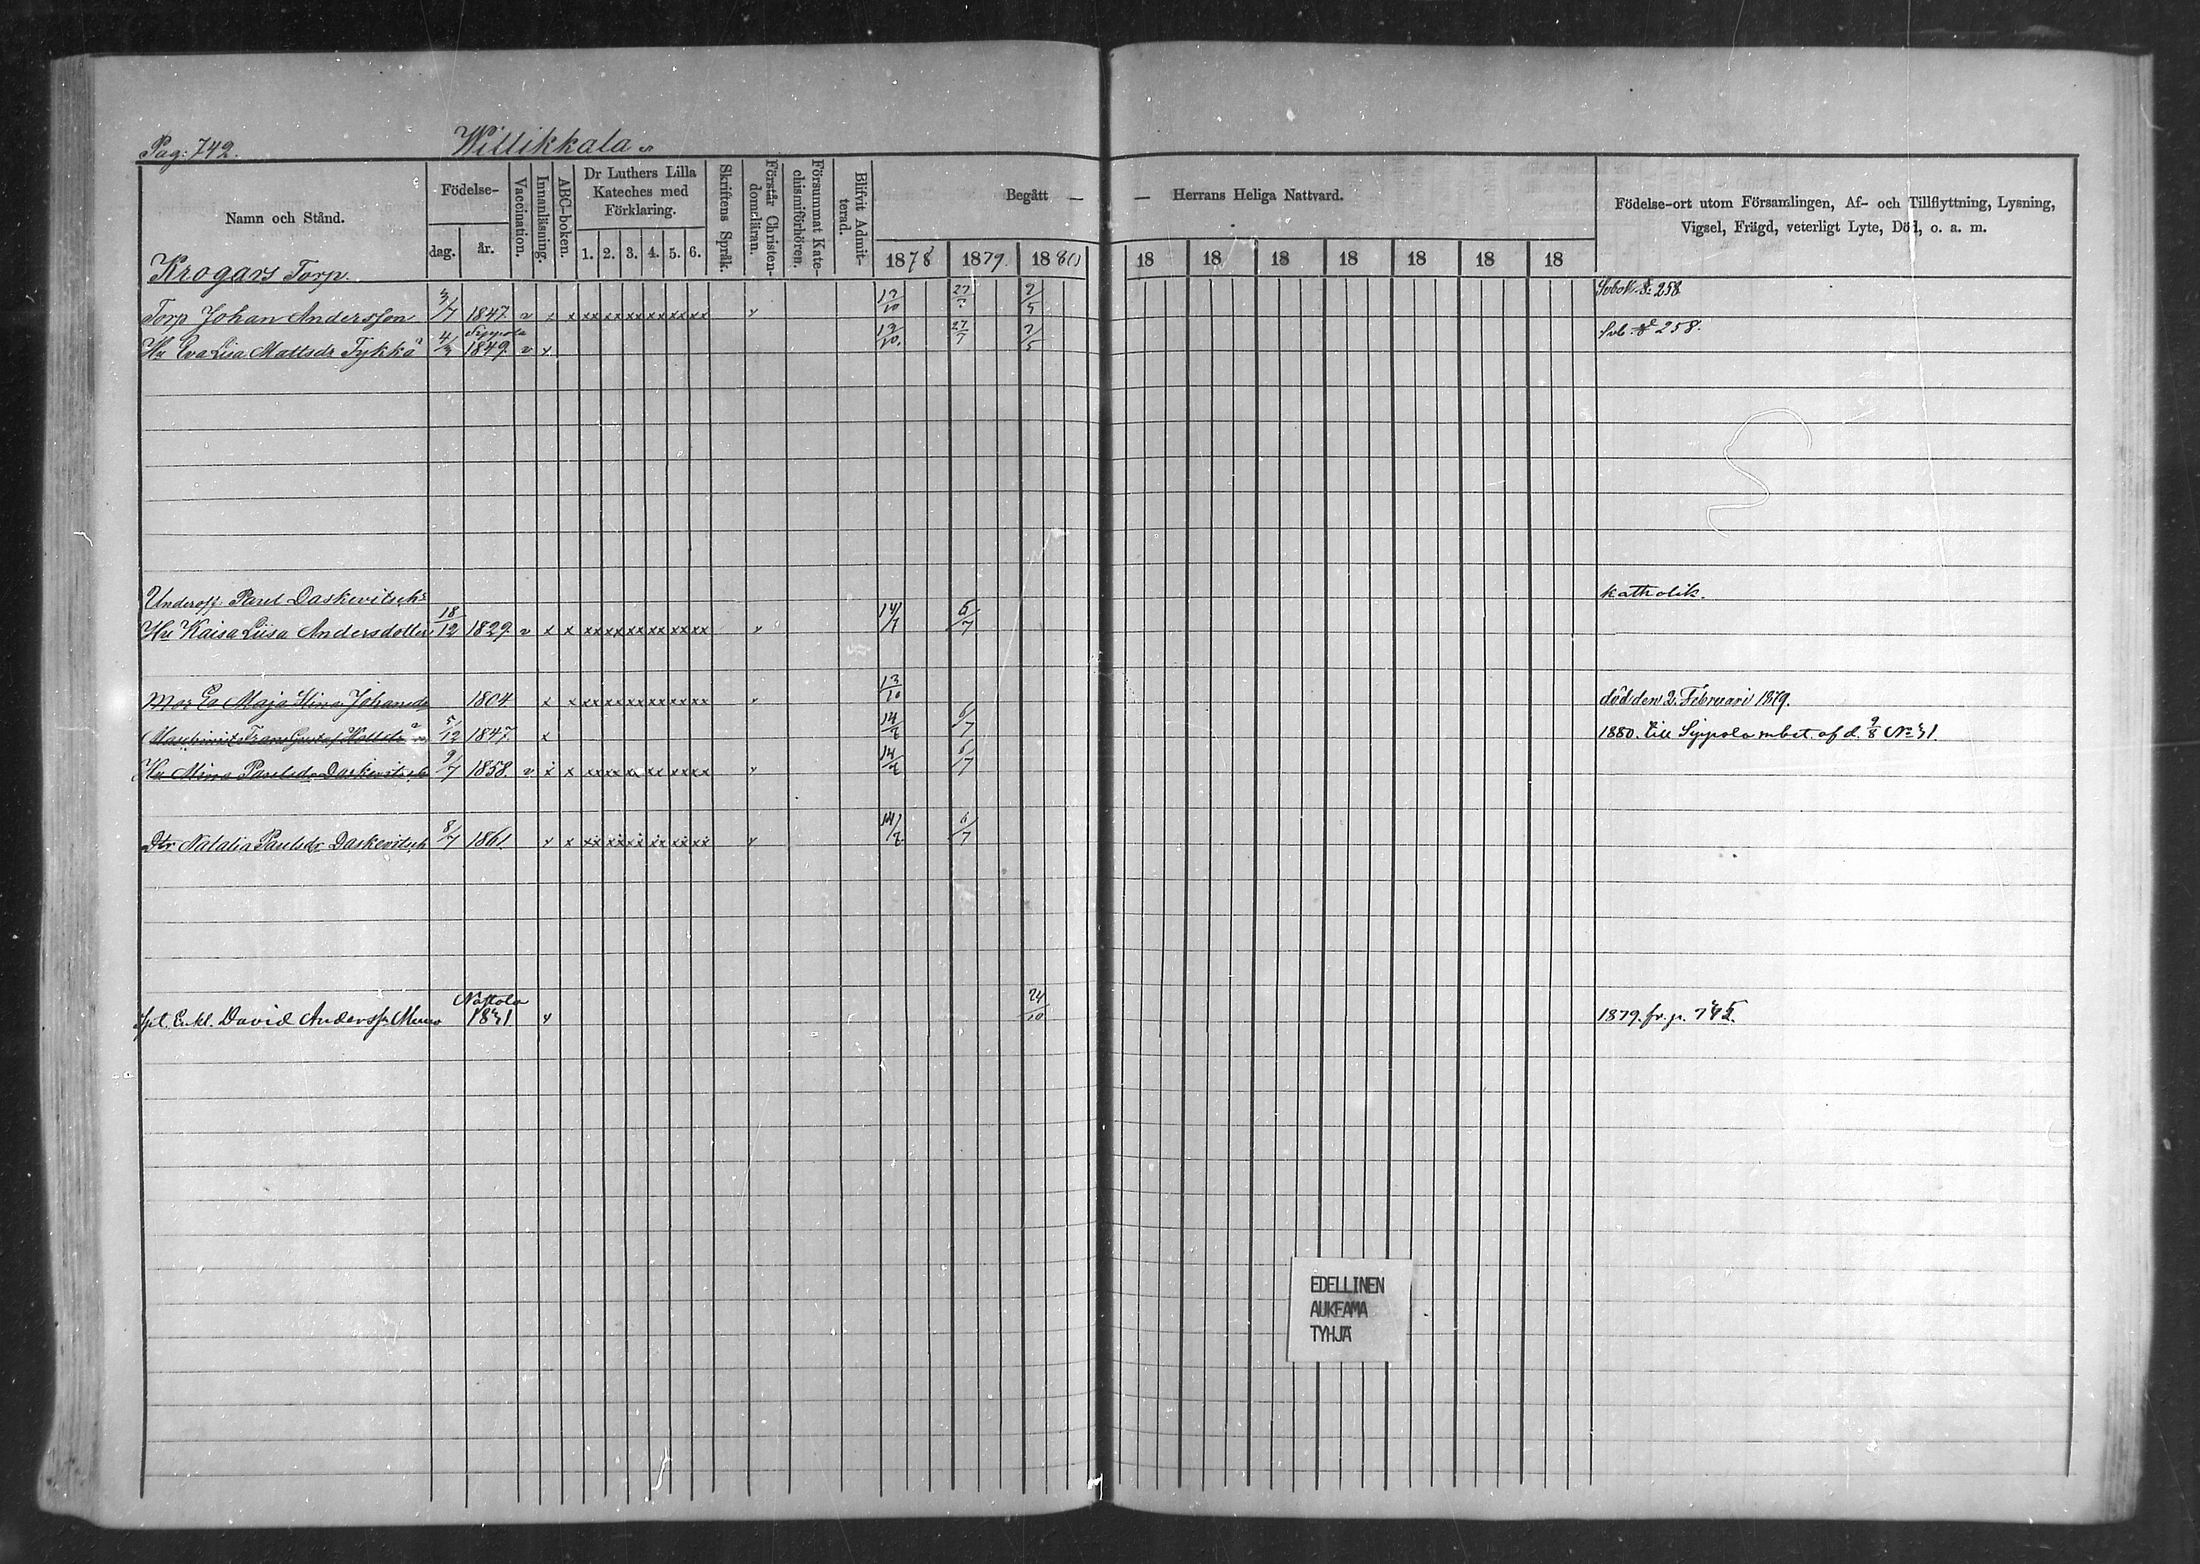 Pag: 742. Willikkala
Namn och Stånd. Födelse- dag. år. Vaccination. Innanläsning. ABC-boken. Dr Luthers Lilla Kateches med Förklaring. 1. 2. 3. 4. 5. 6. Skriftens Språk. Förstår Christendomsläran. Försummat Katechismiförhören. Blifvit Admitterad. Begått — — Herrans Heliga Nattvard. Födelse-ort utom Församlingen, Af- och Tillflyttning, Lysning, Vigsel, Frägd, veterligt Lyte, Död, o. a. m.
1878 1879. 1880 18 18 18 18 18 18 18
Krogars Torp.
Torp Johan Andersson 3/7 1847. v x x xx xx xx xx xx xx v 13/10 27/7 2/5 258
Hu Eva Lisa Mattsdr Tykkä 4/3 Sippola 1849. v x 13/10. 27/7 2/5 258.
Underoff: Paul Daskevitsch katholik.
Hu Kaisa Liisa Andersdotter 18/12 1829. v x x xx xx xx xx xx xx v 14/7 6/7
Mor Maja Stina Johansdr 1804 x x xx xx xx xx xx xx v 13/10 död den 2. Februari 1879.
Frans Gustaf 5/12 1847. x 14/7 6/7 1880. till Sippola mbet. af d. 9/8 No 31.
Hu Mina Paulsdr Daskevitsch 9/7 1858. v x x xx xx xx xx xx xx v 14/7 6/7
Dtr Natalia Paulsdr Daskevitsch 8/7 1861. x x xx xx xx xx xx xx v 14/7 6/7
Enkl. David Anderss. 1831 x 24/10 1879. fr. p. 745.
EDELLINEN
AUKEAMA
TYHJÄ